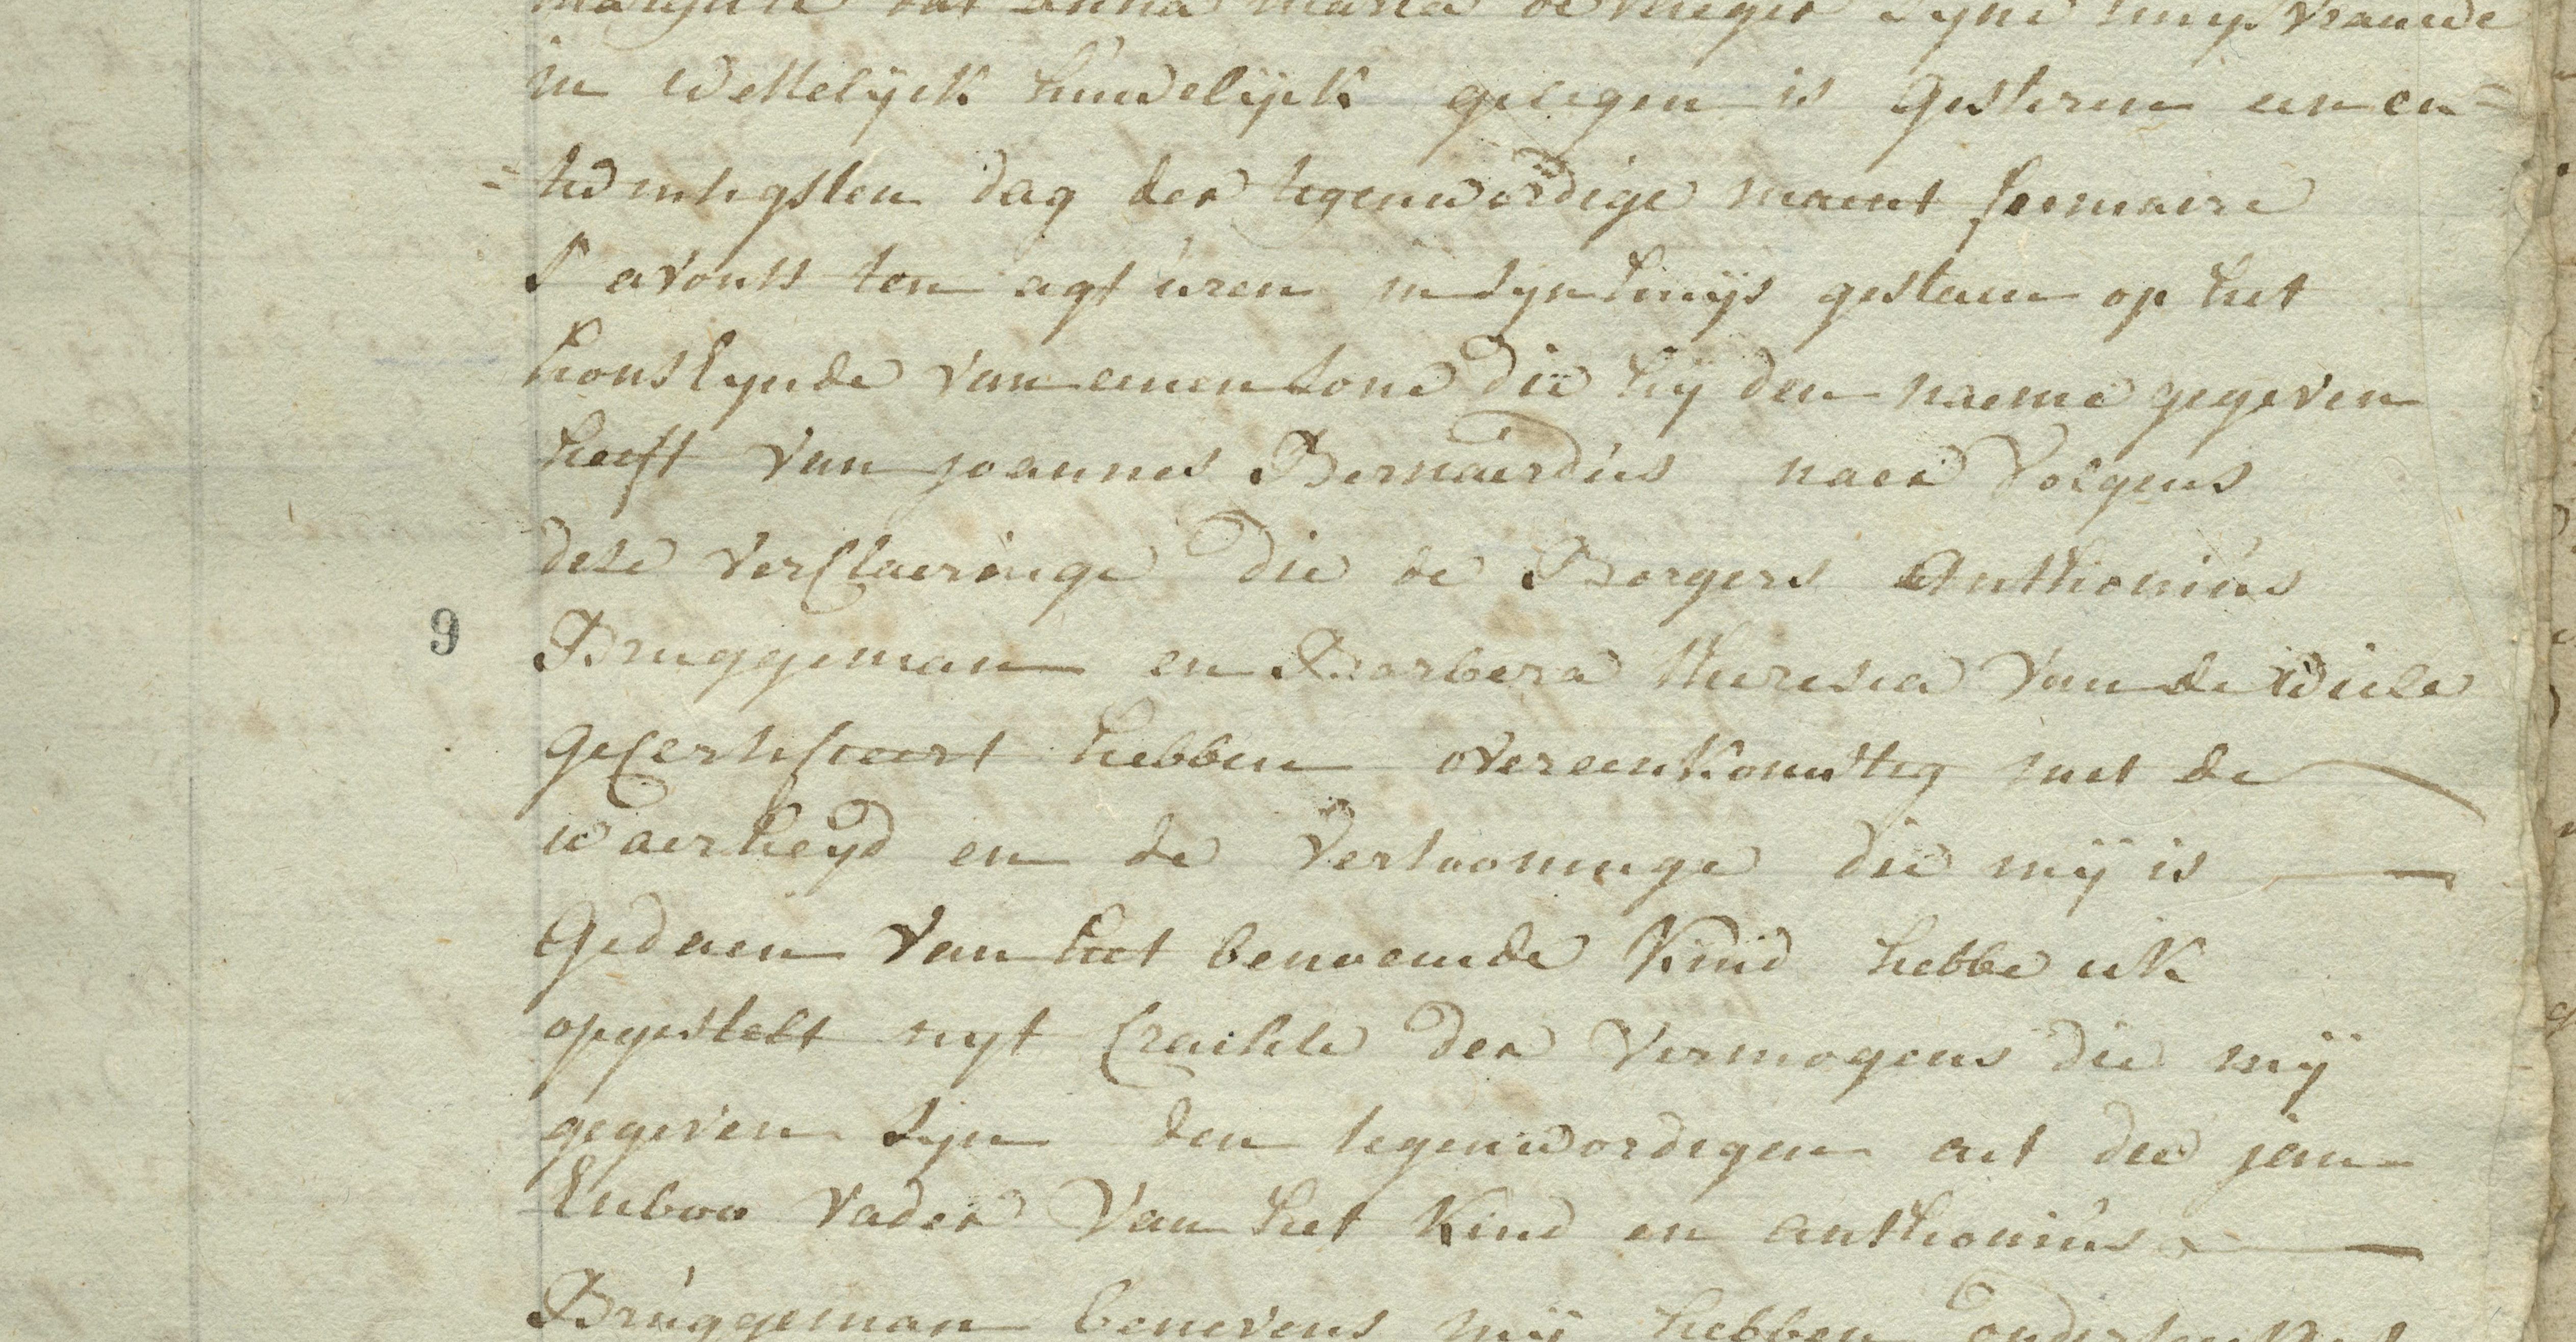 dat anna maria de syne huysvrauwe
in wettelyck huwelyck gelegen is gisteren een en=
=twintigsten dag der tegenwordige maent frimaire
S avonts ten agt uren in syn huys gestaen op het
van eenen sone die hy den naeme gegeven
heeft van joannes Bernardus naer Volgens
dese verclaeringe die de Borgers Anthonius
9 Bruggeman en Barbera theresia Van de wiele
gecertificeert hebben overeenkomstig met de
waerheyd en de vertooninge die mij is
Gedaen Van het benoemde Kind hebbe ick
opgestelt uyt crachte der vermogens die mij
gegeven syn den tegenwordigen act die jan
vader Van het Kind en anthonius
Bruggeman benevens mij hebben